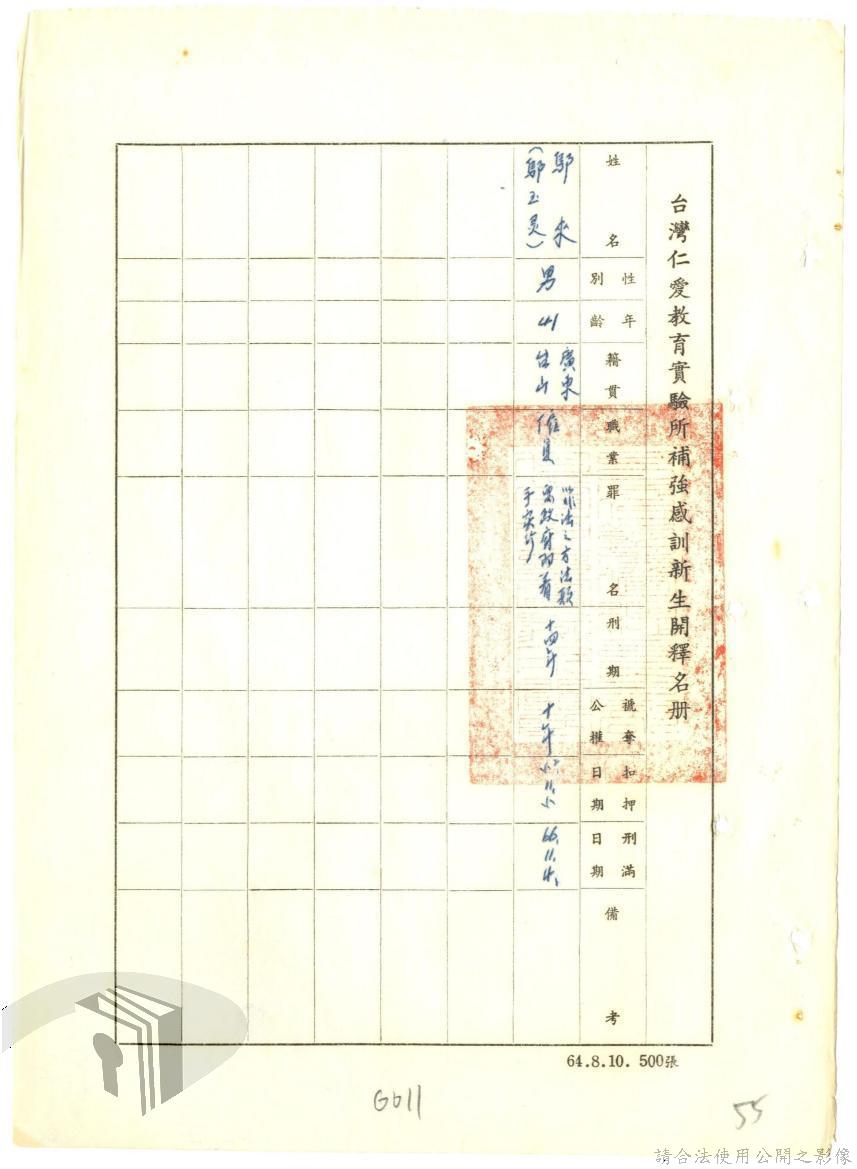 台灣仁愛教育實驗所補強感訓新生開釋名册
姓名
性別
年齡
籍貫
職業
罪名
刑期
褫奪公權
扣押日期
刑滿日期
備考
鄔來
(鄔玉灵)
男
41
廣東
台山
以非法之方法顛
覆政府而着
手实行
十四年
十年
66.11.4.
64.8.10. 500張
G611
55
請合法使用公開之影像